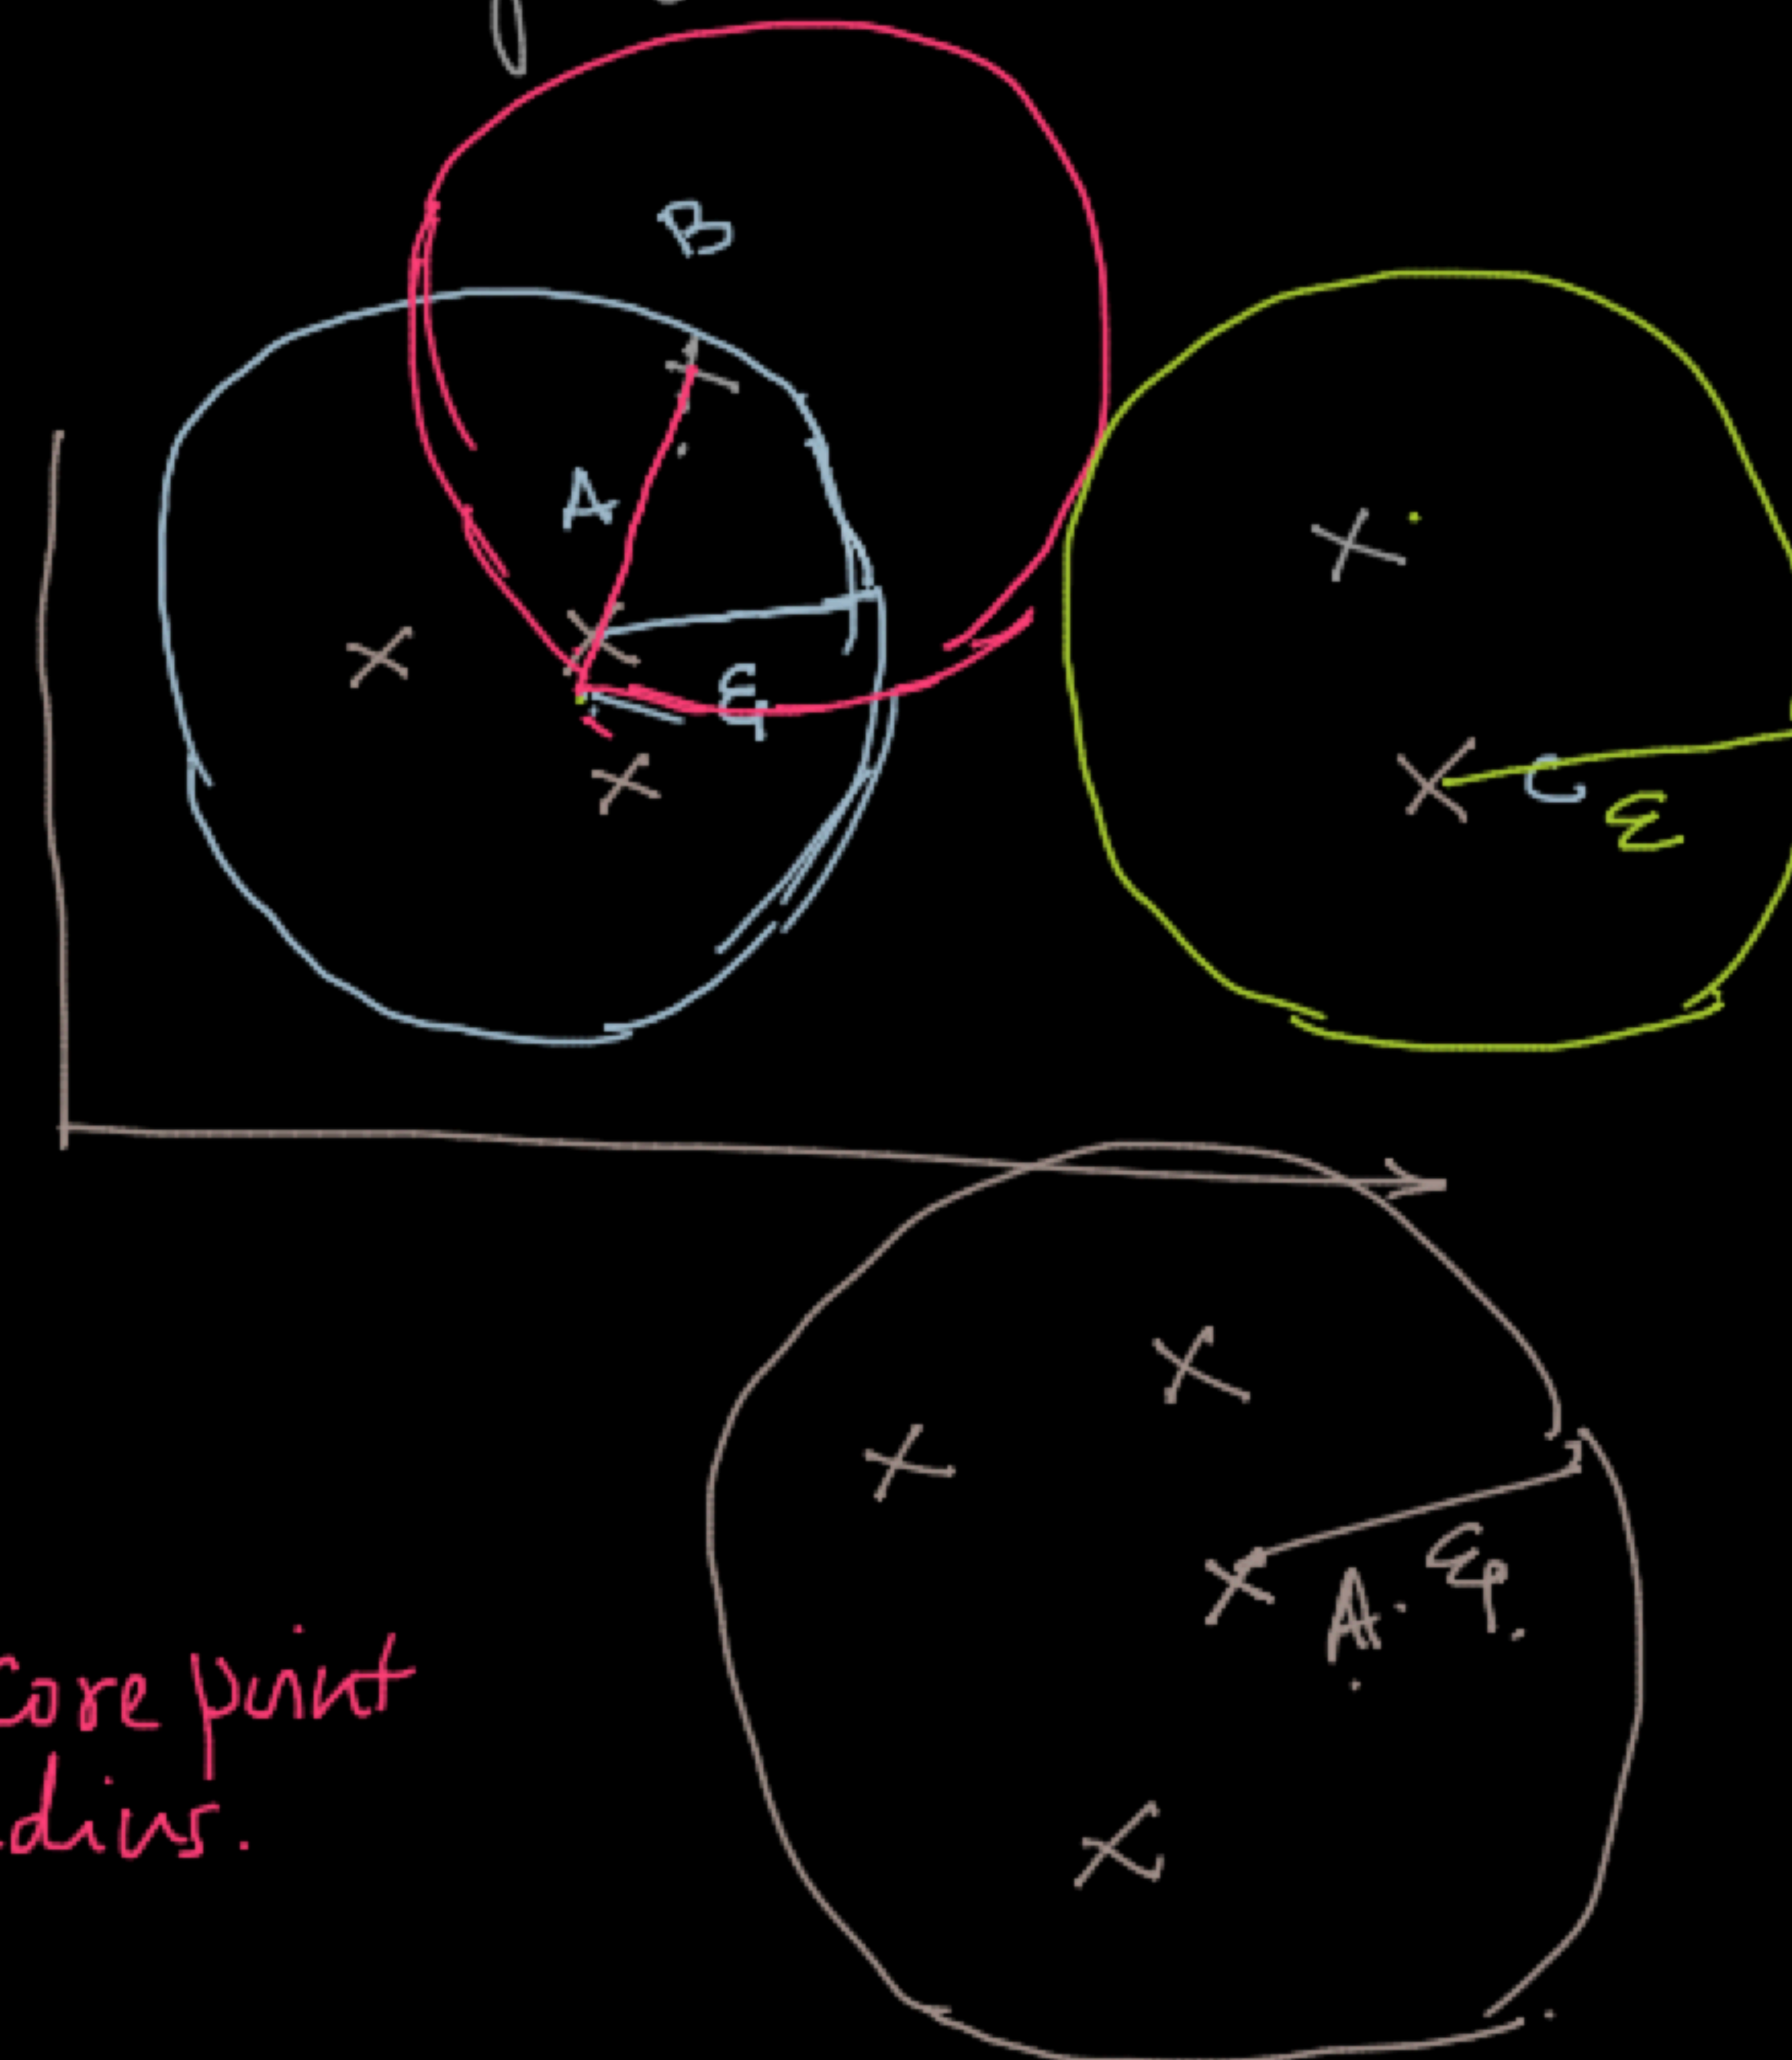 B
A
ε
C
ε
A.
core point
dius.